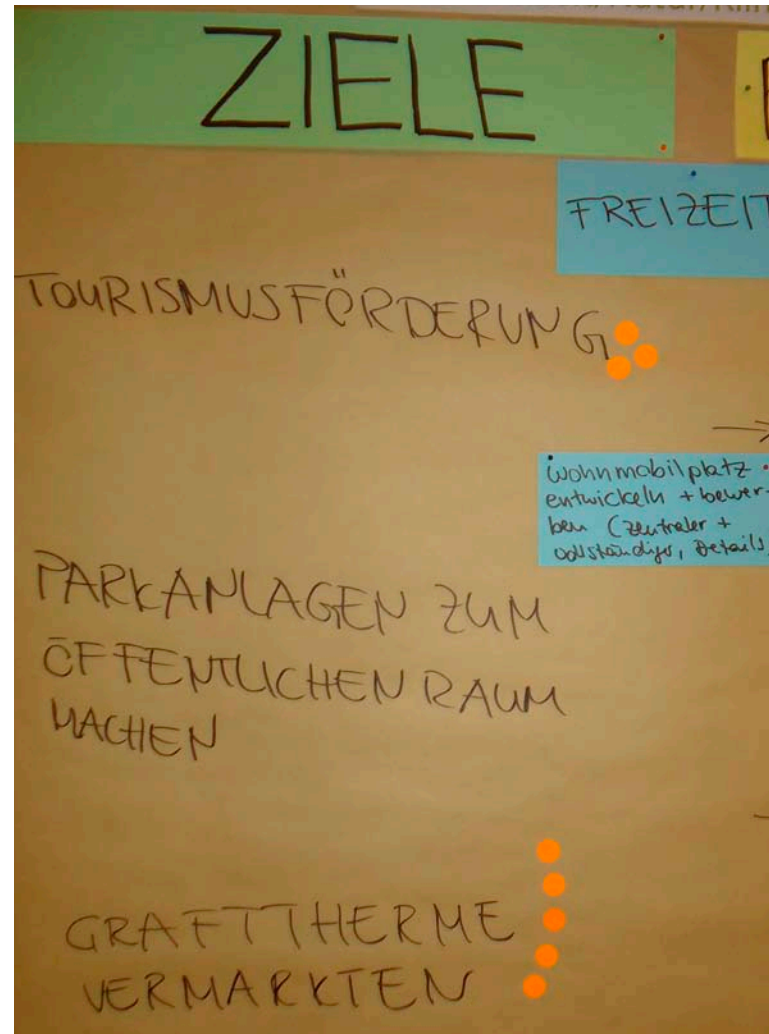 ZIELE
FREIZEIT
TOURISMUSFÖRDERUNG
wohnmobilplatz
entwickeln + bewer-
ben (zentraler +
vollständiger, Details
PARKANLAGEN ZUM
ÖFFENTLICHEN RAUM
MACHEN
GRAFTTHERME
VERMARKTEN